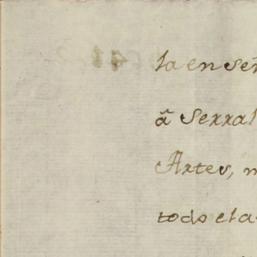 la en señ
ã Serral
Artes, n
todo el a